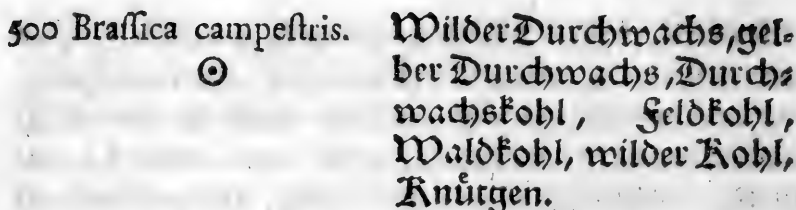 500 Braſſica campeſtris. Wilder Durchwachs, gel-
☉ ber Durchwachs, Durch-
wachskohl, Feldkohl,
Waldkohl, wilder Kohl,
Knuͤtgen.